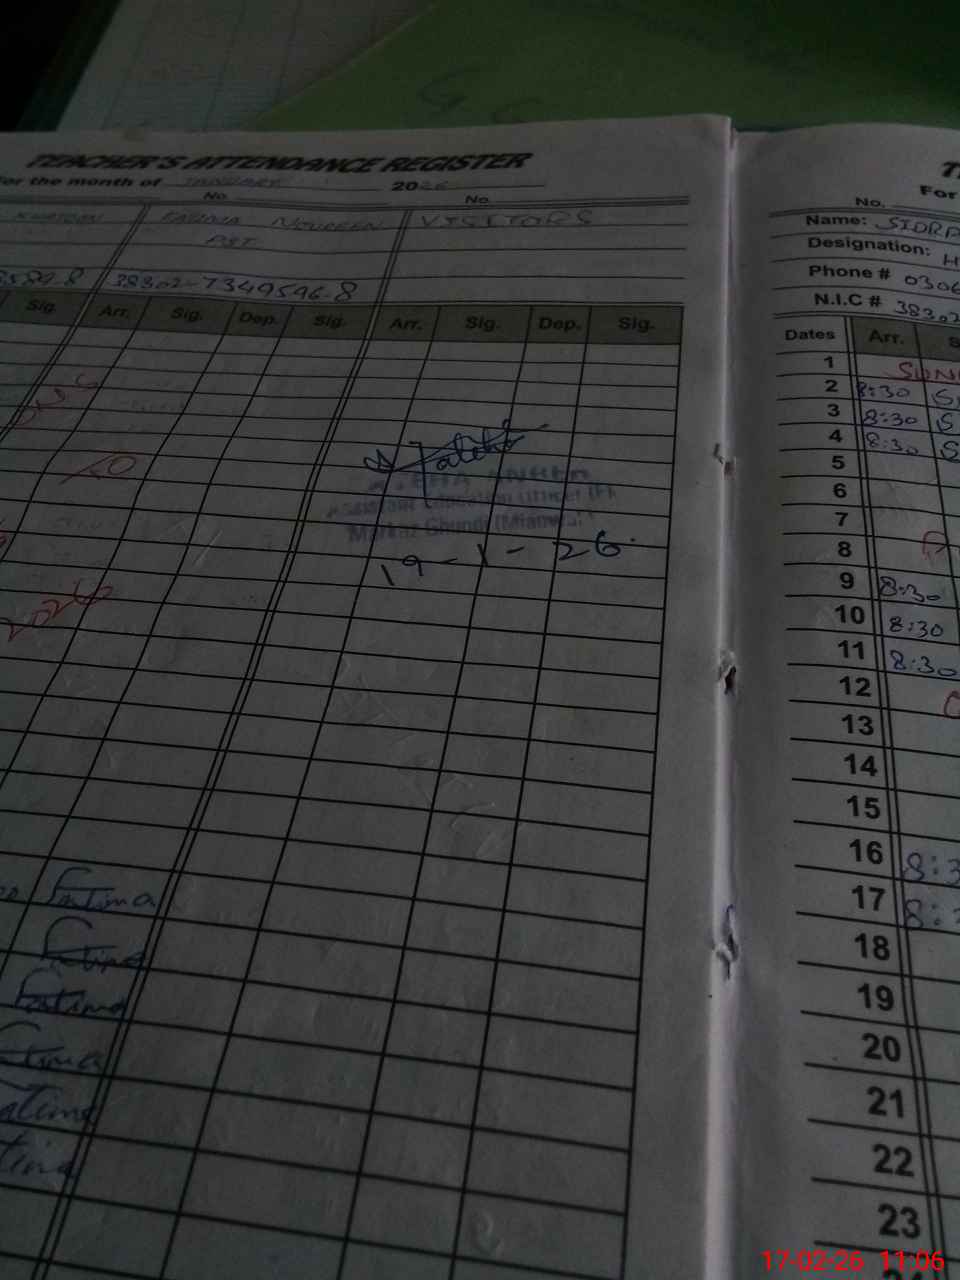 TEACHER'S ATTENDANCE REGISTER
For the month of JANUARY 2026
No. No.
NOUREEN VISITORS
PST
8589-8 38302-7349596-8
Sig. Arr. Sig. Dep. Sig. Arr. Sig. Dep. Sig.
Assistant Education Officer (F)
Markaz Ghundi (Mianwali)
19-1-26.
2026
Fatima
Fatima
Fatima
Fatima
Fatima
No.
For
Name: SIDRA
Designation: H
Phone # 0306
N.I.C # 38302
Dates Arr. S
1 SUN
2 8:30 S
3 8:30 S
4 8:30 S
5
6
7
8
9 8:30
10 8:30
11 8:30
12
13
14
15
16 8:3
17 8:3
18
19
20
21
22
23
17-02-26 11:06